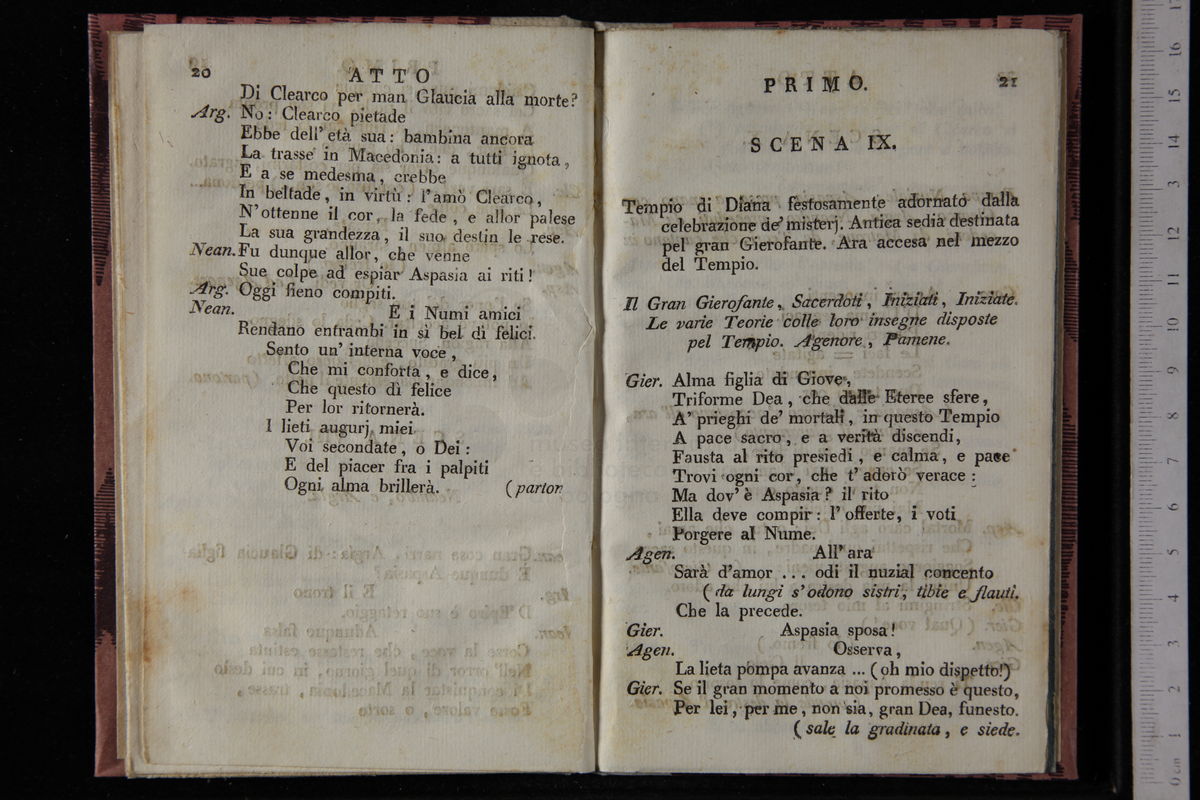 20 ATTO
Di Clearco per man Glaucia alla morte?
Arg. No: Clearco pietade
Ebbe dell' età sua: bambina ancora
La trasse in Macedonia: a tutti ignota,
E a se medesma, crebbe
In beltade, in virtù: l'amò Clearco,
N'ottenne il cor, la fede, e allor palese
La sua grandezza, il suo destin le rese.
Nean. Fu dunque allor, che venne
Sue colpe ad espiar Aspasia ai riti!
Arg. Oggi fieno compiti.
Nean. E i Numi amici
Rendano entrambi in sì bel dì felici.
Sento un' interna voce,
Che mi conforta, e dice,
Che questo dì felice
Per lor ritornerà.
I lieti augurj miei
Voi secondate, o Dei:
E del piacer fra i palpiti
Ogni alma brillerà. (parton
PRIMO. 21
SCENA IX.
Tempio di Diana festosamente adornato dalla
celebrazione de' misterj. Antica sedia destinata
pel gran Gierofante. Ara accesa nel mezzo
del Tempio.
Il Gran Gierofante, Sacerdoti, Iniziati, Iniziate.
Le varie Teorie colle loro insegne disposte
pel Tempio. Agenore, Pamene.
Gier. Alma figlia di Giove,
Triforme Dea, che dalle Eteree sfere,
A' prieghi de' mortali, in questo Tempio
A pace sacro, e a verità discendi,
Fausta al rito presiedi, e calma, e pace
Trovi ogni cor, che t' adorò verace:
Ma dov' è Aspasia? il rito
Ella deve compir: l' offerte, i voti
Porgere al Nume.
Agen. All' ara
Sarà d'amor ... odi il nuzial concento
(da lungi s' odono sistri, tibie e flauti.
Che la precede.
Gier. Aspasia sposa!
Agen. Osserva,
La lieta pompa avanza ... (oh mio dispetto!)
Gier. Se il gran momento a noi promesso è questo,
Per lei, per me, non sia, gran Dea, funesto.
(sale la gradinata, e siede.